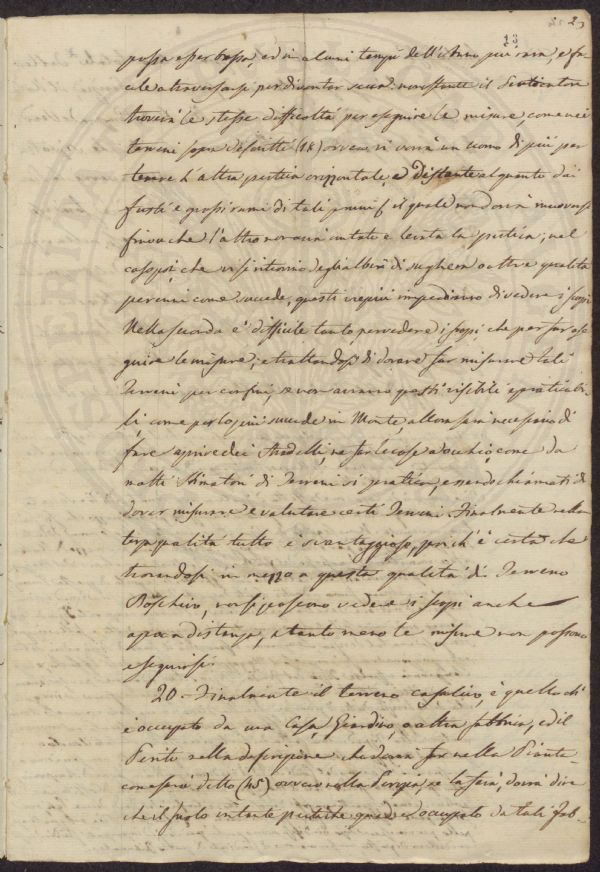 13
possa esser bassa, ed in alcuni tempi dell'Anno più rara, e fa
cile a traversarsi per diventar nonostante il
troverà le stesse difficoltà per eseguire le misure, come nei
terreni sopra descritti (18) ovvero vi vorrà un uomo di più per
tenere l'altra pertica orizzontale, e distante alquanto dai
fusti e grossi rami di tali pruni, il quale non dovrà muoversi
finoche l'altro non avrà contato e levata la pertica; nel
caso poi, che vi si ritrovino degli alberi di sughero o altre qualità
come succede, questi viepiù impediranno di vedere i scopi
Nella seconda è difficile tanto per vedere i scopi, che per far ese
guire le misure; e trattandosi di dovere far misurare tali
Terreni per confini, se non avranno questi visibili e praticabi
li, come per lo più succede in Monte, allora sarà necessario di
fare aprire dei Stradelli, ne far le cose a occhio, come da
molti Stimatori di Terreni si pratica, essendo chiamati di
dover misurare e valutare certi Terreni. Finalmente nella
terza qualità tutto è svantaggioso, poiché è certo che
trovandosi in mezzo a questa qualità di Terreno
Boschivo, non si possono vedere i scopi anche
a poca distanza, e tanto meno le misure non possono
eseguirsi.
20. Finalmente il terreno casalivo, è quello ch'
è occupato da una Casa, Giardino, o altra fabbrica, ed il
Perito nella descrizione che dovrà far nella Pianta
come sarà detto (45) ovvero nella Perizia, se la farà, dovrà dire
che il suolo in tante pertiche quadre è occupato da tali fab-